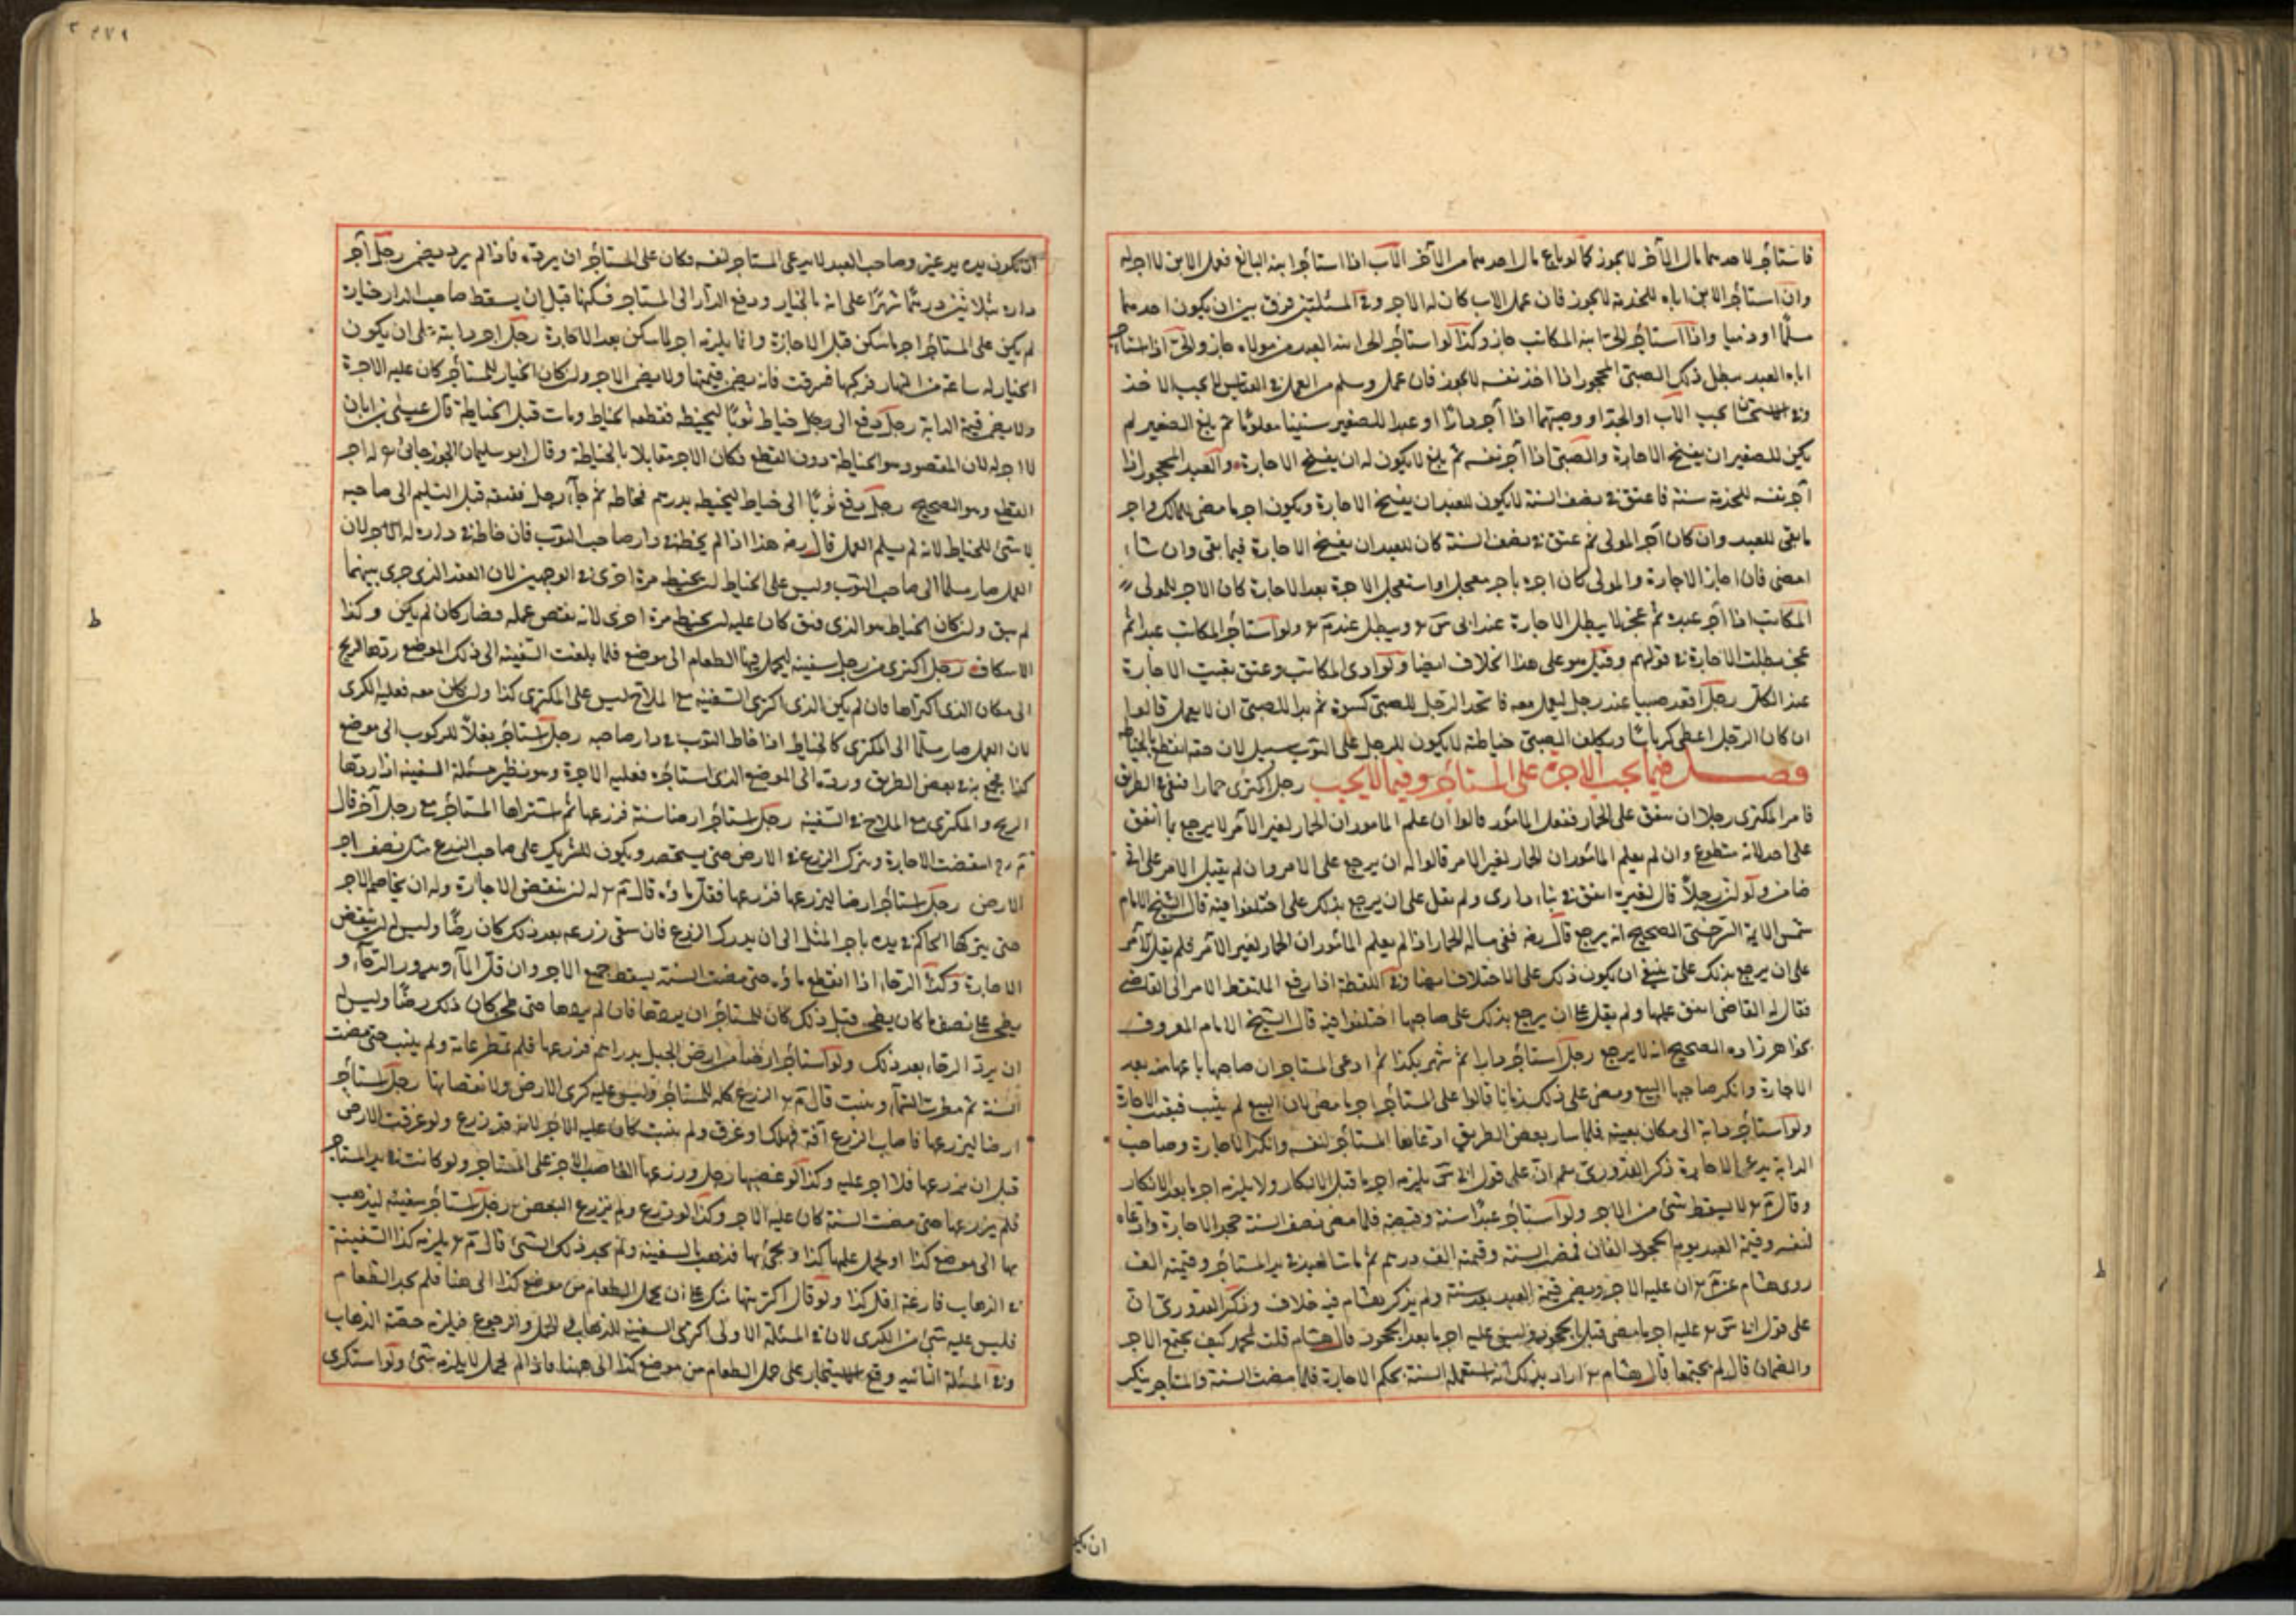 فاستأجر لاحدهما مال الآخر لا يجوز كما لو باع مال احدهما من الآخر الآب اذا استأجر ابنه البالغ فعمل الابن لا اجر له
وان استأجر الابن اباه للخدمة لا يجوز فان عمل الاب كان له الاجر وفي المسئلتين فرق بين ان يكون احدهما
مسلمًا او ذميا واذا استأجر الحر ابنه المكاتب جاز وكذا لو استأجر الحر ابنه العبد من مولاه جاز والحر اذا استأجر
اباه العبد بطل ذلك الصبي المحجور اذا اخذ نفسه لا يجوز فان عمل وسلم من العمل في القياس لا يجب الاخذ
وفي الاستحسان يجب الآب او الجد او وصيهما اذا آجر دارًا او عبدا للصغير سنينا معلومًا ثم بلغ الصغير لم
يكن للصغير ان يفسخ الاجارة والصبي اذا آجر نفسه ثم بلغ لا يكون له ان يفسخ الاجارة والعبد المحجور اذا
آجر نفسه للخدمة سنة فاعتق في نصف السنة لا يكون للعبد ان يفسخ الاجارة ويكون اجر ما مضى للمالك واجر
ما بقي للعبد وان كان آجر المولى ثم عتق في نصف السنة كان للعبد ان يفسخ الاجارة فيما بقي وان شاء
امضى فان اجاز الاجارة والمولى كان اجره باجر معجل او استعجل الاجرة بعد الاجارة كان الاجر للمولى
المكاتب اذا آجر عبده ثم عجز لا يبطل الاجارة عند ابي س ر ويبطل عند م ر ولو استأجر المكاتب عبدا ثم
عجز بطلت الاجارة في قولهم وقيل هو على هذا الخلاف ايضا ولو ادى المكاتب وعتق بقيت الاجارة
عند الكل رجل اقعد صبيا عند رجل ليعمل معه فاتخذ الرجل للصبي كسوة ثم بدا للصبي ان لا يعمل قالوا
ان كان الرجل اعطى كرباسًا ويكلف الصبي خياطته لا يكون للرجل على الثوب سبيل لان حقه انقطع بالخياطة
فصل فيما يجب الاجرة على المستأجر وفيما لا يجب رجل اكترى حمارا فنفق في الطريق
فامر المكترى رجلا ان ينفق على الحمار ففعل المأمور قالوا ان علم المامور ان الحمار لغير الآمر لا يرجع بما انفق
على احد لانه متطوع وان لم يعلم المأمور ان الحمار لغير الامر قالوا له ان يرجع على الامر وان لم يقبل الامر على انى
ضامن ولو ان رجلًا قال لغيره انفق في بناء داري ولم يقل على ان يرجع بذلك علي اختلفوا فيه قال الشيخ الامام
شمس الايمة السرخسي الصحيح انه يرجع قال رضه ففي مسالة الحمار اذا لم يعلم المأمور ان الحمار لغير الآمر فلم يقل الآمر
على ان يرجع بذلك علي ينبغي ان يكون ذلك على الاختلاف ايضا وفي اللقطة اذا رفع الملتقط الامر الى القاضي
فقال له القاضي انفق عليها ولم يقل على ان يرجع بذلك على صاحبها اختلفوا فيه قال الشيخ الامام المعروف
بخواهر زاده الصحيح انه لا يرجع رجل استأجر دارا ثم شهر بكذا ثم ادعى المستاجر ان صاحبها باعها منه بعد
الاجارة وانكر صاحبها البيع ومضى على ذلك زمانا قالوا على المستأجر اجر ما مضى لان البيع لم يثبت فبقيت الاجارة
ولو استأجر دابة الى مكان بعينه فلما سار بعض الطريق ادعاها المستأجر لنفسه وانكر الاجارة وصاحب
الدابة يدعى الاجارة ذكر القدوري رحمه الله ان على قول ابي س يلزمه اجر ما قبل الانكار ولا يلزمه اجر ما بعد الانكار
وقال م ر لا يسقط شئ من الاجر ولو استأجر عبدًا سنة وقبضه فلما مضى نصف السنة جحد الاجارة وادعاه
لنفسه وقيمة العبد يوم الجحود الفان فمضت السنة وقيمته الف درهم ثم مات العبد في يد المستأجر وقيمته الف
روى هشام عن م ر ان عليه الاجر ويضمن قيمة العبد بعد سنة ولم يذكر هشام فيه خلاف وذكر القدوري ان
على قول ابي س ر عليه اجر ما مضى قبل الجحود وليس عليه اجر ما بعد الجحود قال هشام قلت لمحمد كيف يجتمع الاجر
والضمان قال لم يجتمعا قال هشام ر اراد بذلك انه استعمله السنة بحكم الاجارة فلما مضت السنة والمستأجر ينكر
ان يكون
ان يكون يده يد غيره وصاحب العبد لا يدعى المستاجر لنفسه فكان على المستأجر ان يرده فاذا لم يرد يضمن رجل آجر
داره بثلاثين درهمًا شهرًا على انه بالخيار ودفع الدار الى المستاجر فسكنها قبل ان يسقط صاحب الدار خياره
لم يكن على المستأجر اجر ما سكن قبل الاجازة وانما يلزمه اجر ما سكن بعد الاجازة رجل اجر دابة على ان يكون
الخيار له ساعة من النهار فركبها فسرقت فانه يضمن قيمتها ولا يضمن الاجر ولو كان الخيار للمستأجر كان عليه الاجرة
ولا يضمن قيمة الدابة رجل دفع الى رجل خياط ثوبًا ليخيط فقطعه الخياط ومات قبل الخياطة قال عيسى بن ابان
لا اجر له لان المقصود هو الخياطة دون القطع فكان الاجر مقابلا بالخياطة وقال ابو سليمان الجوزجاني ر له اجر
القطع وهو الصحيح رجل دفع ثوبًا الى خياط ليخيطه بدرهم فخاطه ثم جاء رجل ففتقه قبل التسليم الى صاحبه
لا شئ للخياط لانه لم يسلم العمل قال رضه هذا اذا لم يخطه في دار صاحب الثوب فان خاطه في داره له الاجر لان
العمل صار مسلما الى صاحب الثوب وليس على الخياط ان يخيط مرة اخرى في الوجهين لان العقد الذي جرى بينهما
لم يبق ولو كان الخياط هو الذي فتق كان عليه ان يخيط مرة اخرى لانه نقض عمله فصار كان لم يكن وكذا
الاسكاف رجل اكترى من رجل سفينة ليحمل فيها الطعام الى موضع فلما بلغت السفينة الى ذلك الموضع ردها الريح
الى مكان الذي اكتراها فان لم يكن الذي اكترى السفينة مع الملاح ليس على المكترى كذا ولو كان معه فعليه الكرى
لان العمل صار مسلمًا الى المكترى كالخياط اذا خاط الثوب في دار صاحبه رجل استأجر بغلًا للركوب الى موضع
كذا فجمح به في بعض الطريق ورده الى الموضع الذي استأجره فعليه الاجرة وهو نظير مسئلة السفينة اذا ردها
الريح والمكترى مع الملاح في السفينة رجل استأجر ارضا سنة فزرعها ثم اشتراها المستأجر مع رجل آخر قال
م رح انتقضت الاجارة ويترك الزرع في الارض حتى يستحصد ويكون للشريك على صاحب الزرع مثل نصف اجر
الارض رجل استأجر ارضا ليزرعها فزرعها فقل ماؤه قال م ر له ان ينقض الاجارة وله ان يخاصم الاجر
حتى يتركها الحاكم في يده باجر المثل الى ان يدرك الزرع فان سقى زرعه بعد ذلك كان رضًا وليس له ان ينقض
الاجارة وكذا الرحاء اذا انقطع ماؤه حتى مضت السنة يسقط جميع الاجر وان قل الماء ويدور الرحاء و
يطحن على نصف ما كان يطحن قبل ذلك كان للمستأجر ان يردها فان لم يردها حتى طحن كان ذلك رضًا وليس له
ان يرد الرحاء بعد ذلك ولو استأجر ارضا من ارض الجبل بدراهم فزرعها فلم تمطر عامه ولم ينبت حتى مضت
السنة ثم مطرت السماء ونبت قال م ر الزرع كله للمستأجر وليس عليه كرى الارض ولا نقصانها رجل استأجر
ارضا ليزرعها فاصاب الزرع آفة فهلك او غرق ولم ينبت كان عليه الاجر لانه قد زرع ولو غرقت الارض
قبل ان يزرعها فلا اجر عليه وكذا لو غصبها رجل وزرعها الغاصب لا اجر على المستاجر ولو كانت في يد المستاجر
فلم يزرعها حتى مضت السنة كان عليه الاجر وكذا لو زرع ولم يزرع البعض رجل استأجر سفينة ليذهب
بها الى موضع كذا او يحمل عليها كذا ويجئ بها فذهب بالسفينة ولم يجد ذلك الشئ قال م ر يلزمه كذا السفينة
في الذهاب فارغة اقل كذا ولو قال اكتريتها منك على ان تحمل الطعام من موضع كذا الى هنا فلم يجد الطعام
فليس عليه شئ من الكرى لان في المسئلة الاولى اكترى السفينة للذهاب والحمل والرجوع فيلزمه حصة الذهاب
وفي المسئلة الثانيه وقع الاستيجار على حمل الطعام من موضع كذا الى هنا فاذا لم يحمل لا يلزمه شئ ولو استكرى